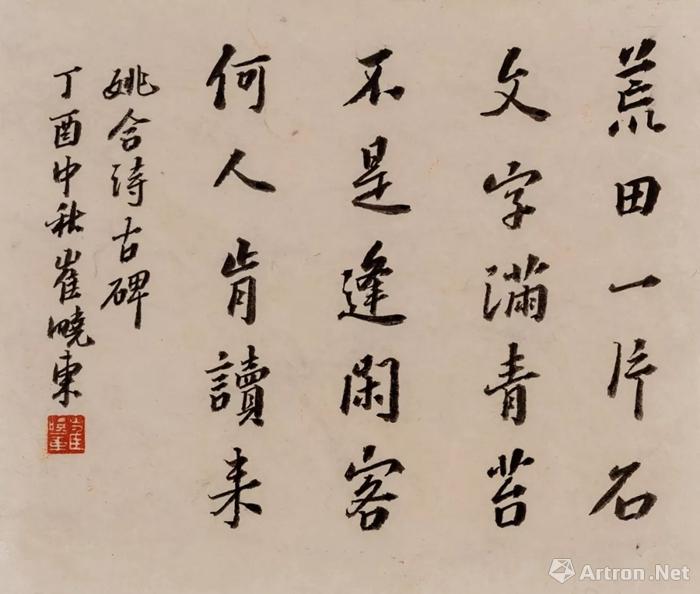 荒田一片石
文字滿青苔
不是逢閑客
何人肯讀来
姚合詩古碑
丁酉中秋崔曉東
崔曉東
雅昌艺术网
Artron.Net